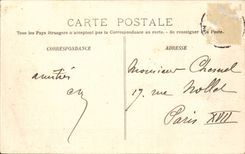 CARTE POSTALE
Tous les Pays étrangers n'acceptent pas la Correspondance au recto. - Se renseigner à la Poste.
CORRESPONDANCE
ADRESSE
amitiés
Monsieur Chesnel
17, rue Nollet
Paris XVII